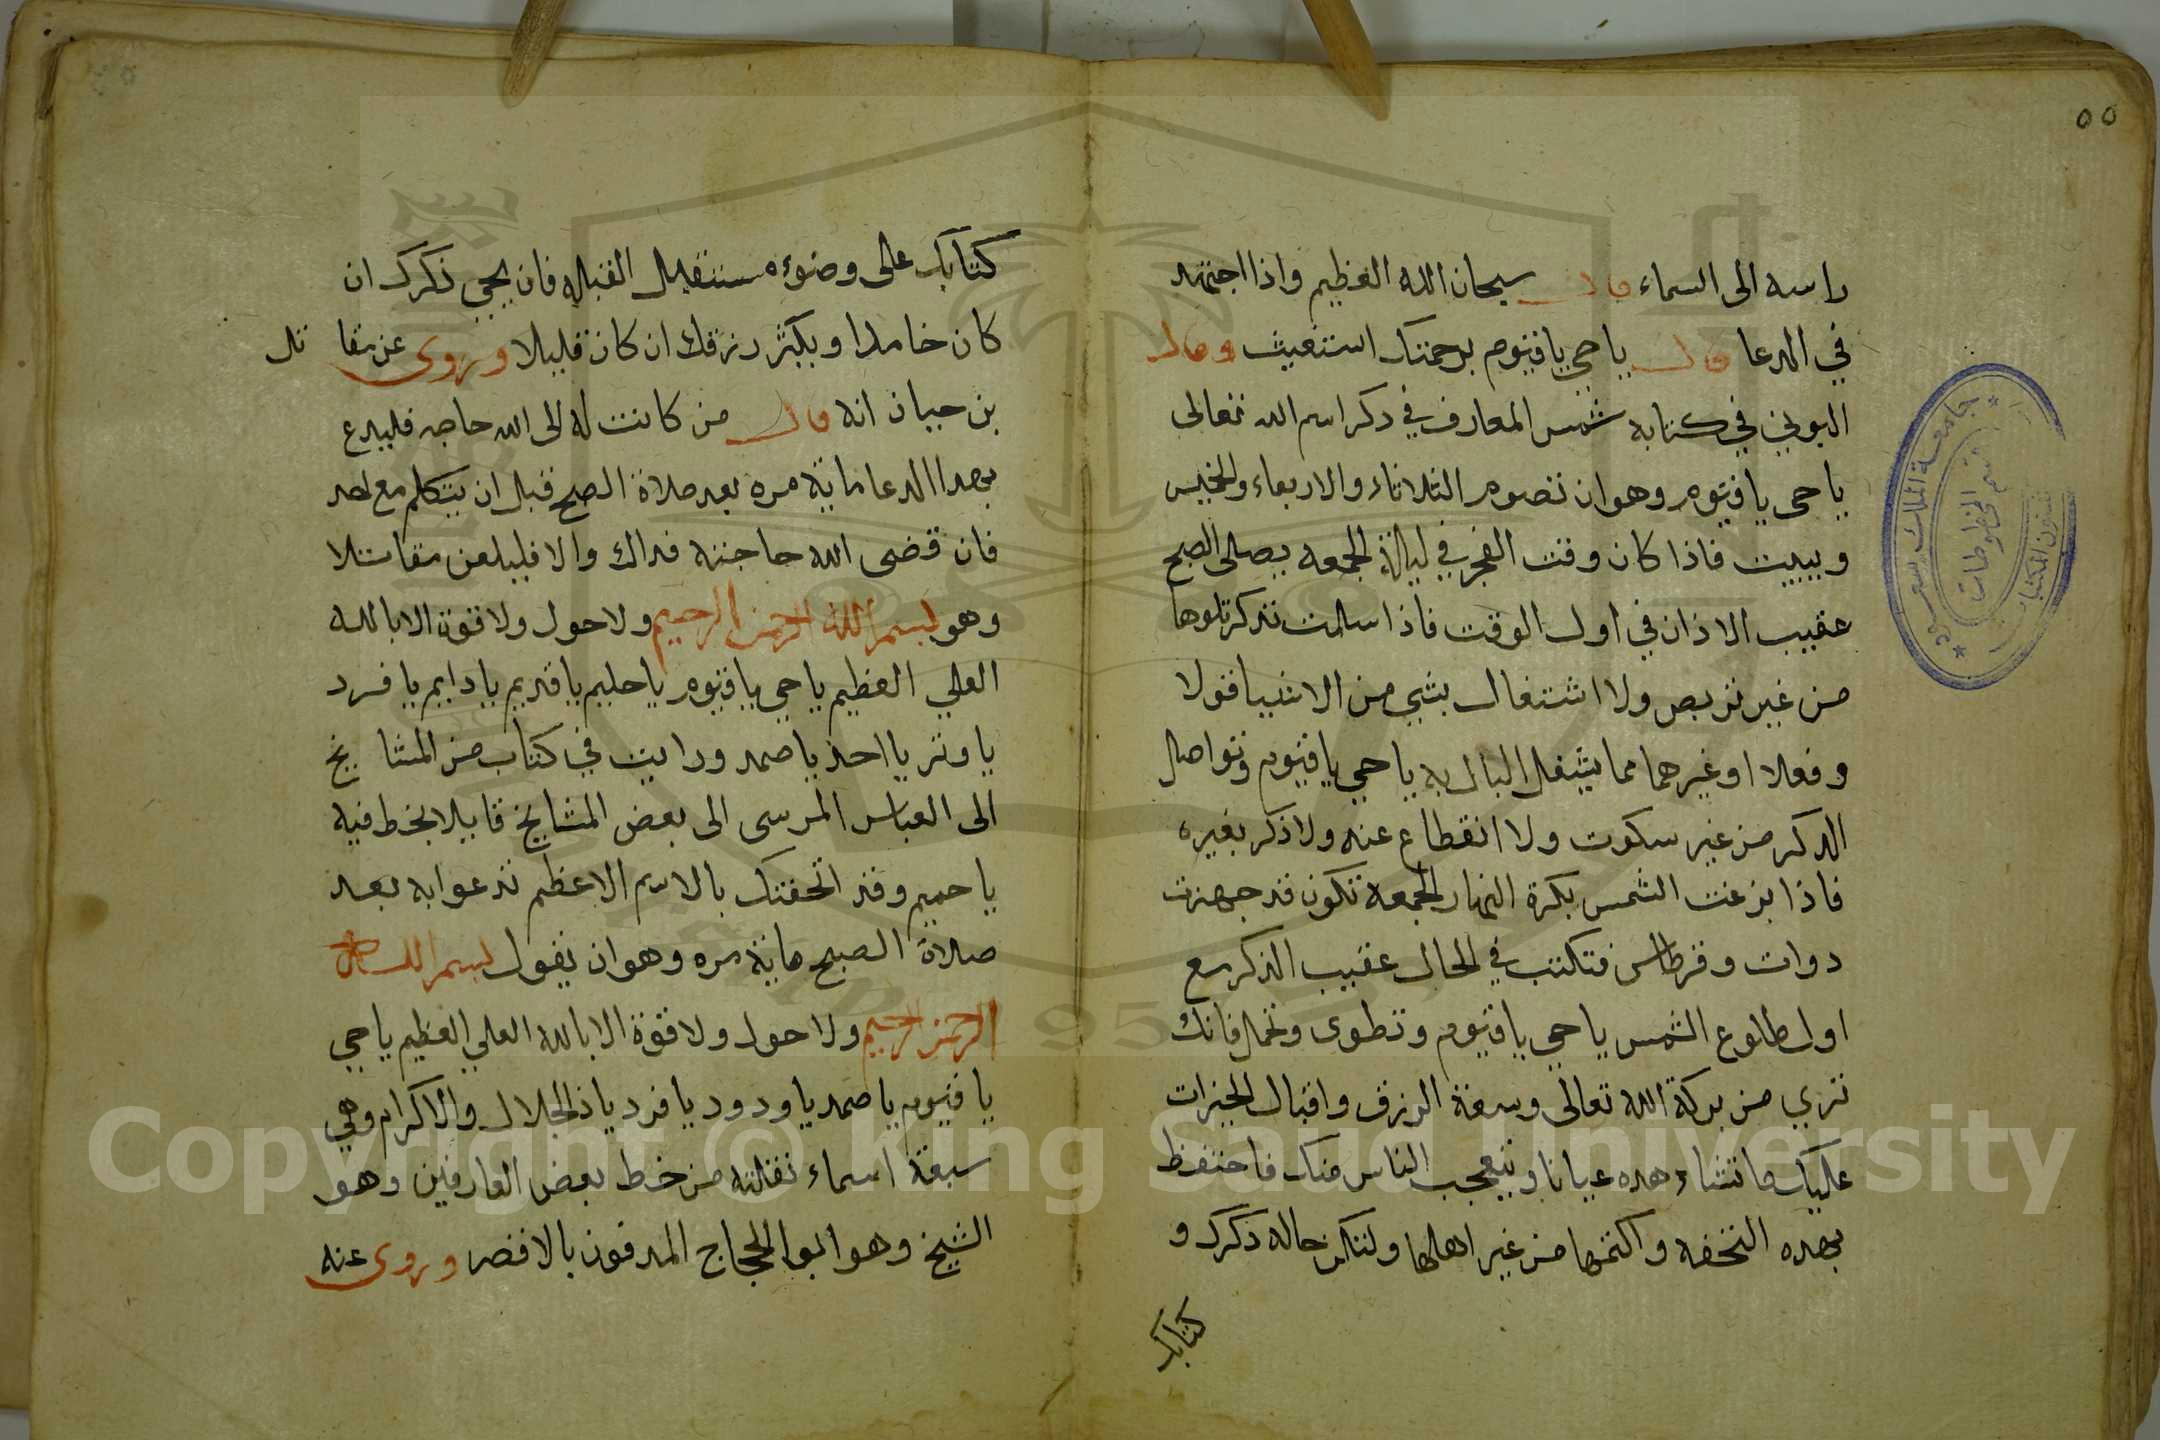 ٥٥
راسه الى السماء قال سبحان الله العظيم واذا اجتهد
في الدعا قال ياحي ياقيوم برحمتك استغيث وقال
البوني في كتابه شمس المعارف في ذكر اسم الله تعالى
ياحي ياقيوم وهو ان تصوم الثلاثاء والاربعاء والخميس
ويبيت فاذا كان وقت الفجر في ليلة الجمعه يصلى الصبح
عقيب الاذان في اول الوقت فاذا سلمت تذكر تلوها
من غير تربص ولا اشتغال بشي من الاشيا قولا
وفعلا او غيرهما مما يشغل البال به ياحي ياقيوم وتواصل
الذكر من غير سكوت ولا انقطاع عنه ولا ذكر بغيره
فاذا بزغت الشمس بكرة النهار الجمعة تكون قد جهزت
دوات وقرطاس فتكتب في الحال عقيب الذكر مع
اول طلوع الشمس ياحي ياقيوم وتطوى وتحمل فانك
ترى من بركة الله تعالى وسعة الرزق واقبال الخيرات
عليك ماتشاء هده عيانا ويتعجب الناس منك فاحتفظ
بهده التحفه واكتمها من غير اهلها ولتكن حاله ذكرك و
كتابك
كتابك على وضوء مستقبل القبله فان يحيى ذكرك ان
كان خاملا ويكثر رزقك ان كان قليلا وروى عن مقا تل
بن حيان انه قال من كانت له الى الله حاجه فليدع
بهدا الدعا ماية مره بعد صلاة الصبح قبل ان يتكلم مع احد
فان قضى الله حاجته فداك والا فليلعن مقاتلا
وهو بسم الله الرحمن الرحيم ولاحول ولاقوة الابالله
العلي العظيم ياحي ياقيوم ياحليم ياقديم يادايم يافرد
ياوتر يااحد ياصمد ورايت في كتاب من المشا يخ
الى العباس المرسى الى بعض المشايخ قايلا بخط فيه
ياحميم وقد اتحفتك بالاسم الاعظم تدعوا به بعد
صلاة الصبح ماية مره وهو ان تقول بسم الله
الرحمن الرحيم ولاحول ولاقوة الابالله العلي العظيم ياحي
ياقيوم ياصمد ياودود يافرد ياذالجلال والاكرام وهي
سبعة اسماء نقلته من خط بعض العارفين وهو
الشيخ وهو ابو الحجاج المدفون بالاقصر وروى عنه
جامعة الملك سعود
قسم المخطوطات
Copyright © King Saud University